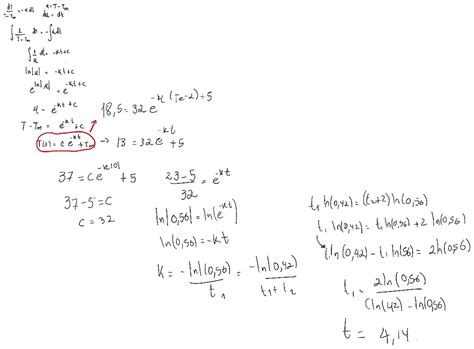 dT/(T-Tm) = -k dt    u = T-Tm
du = dt
∫ 1/(T-Tm) dt = -∫ k dt
∫ 1/u du = -kt+c
ln|u| = -kt+c
e^ln|u| = e^-kt+c
u = e^-kt+c
T-Tm = e^-kt+c
T(t) = c e^-kt + Tm
18,5 = 32 e^-k(Te-2) + 5
→ 13 = 32 e^-kt + 5
37 = C e^-k(0) + 5
37-5 = C
C = 32
23-5/32 = e^-kt
ln|0,56| = ln(e^-kt)
ln(0,56) = -kt
K = -ln(0,56)/t1 = -ln(0,42)/t1+t2
t1 ln(0,42) = (t1+2) ln(0,56)
t1 ln(0,42) = t1 ln(0,56) + 2 ln(0,56)
t1 ln(0,42) - t1 ln(56) = 2 ln(0,56)
t1 = 2 ln(0,56)/(ln(42) - ln(0,56)
t = 4,14